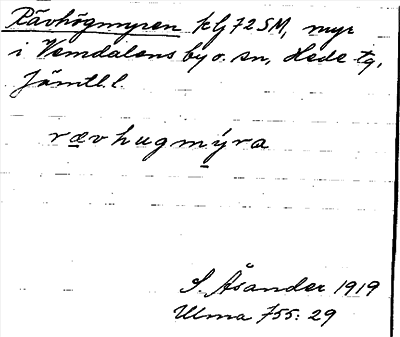 Rävhögmyren klj 72 SM, myr
i Vemdalens by o. sn, Hede tg,
Jämtl. l.
rævhugmýra
S. Åsander 1919
Ulma 755: 29